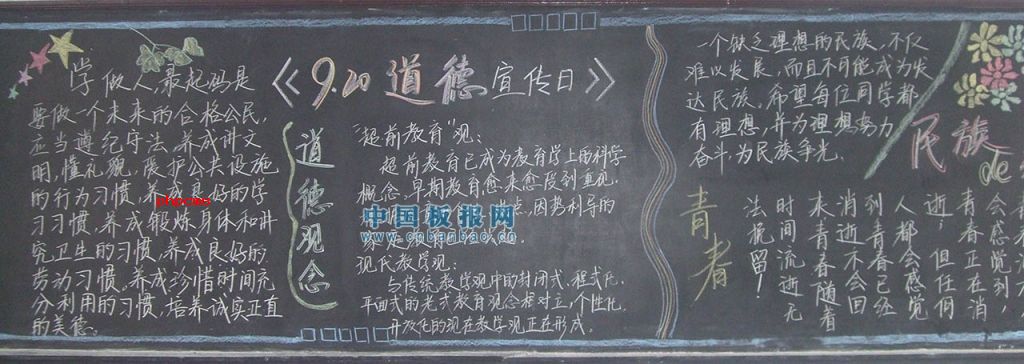 学做人,最起码是
要做一个未来的合格公民,
应当遵纪守法,养成讲文
明,懂礼貌,爱护公共设施
的行为习惯,养成良好的学
习习惯,养成锻炼身体和讲
究卫生的习惯,养成良好的
劳动习惯,养成珍惜时间充
分利用的习惯,培养诚实正直
的美德.
《9.20道德宣传日》
道德观念
"超前教育"观:
超前教育已成为教育学上的科学
概念,早期教育愈来愈受到重视.
点,因势利导的
中国板报网
www.cnbanbao.cn
现代教学观:
与传统教学观中的封闭式、程式化、
平面式的老式教育观念相对立,个性化、
开放化的现在教学观正在形成.
一个缺乏理想的民族,不仅
难以发展,而且不可能成为发
达民族.希望每位同学都
有理想,并为理想努力
奋斗,为民族争光.
民族
de
青春
会感觉到
青春正在消
逝,但任何
人都会感觉
到青春已经
消逝不会回
来青春随着
时间流逝无
法挽留!